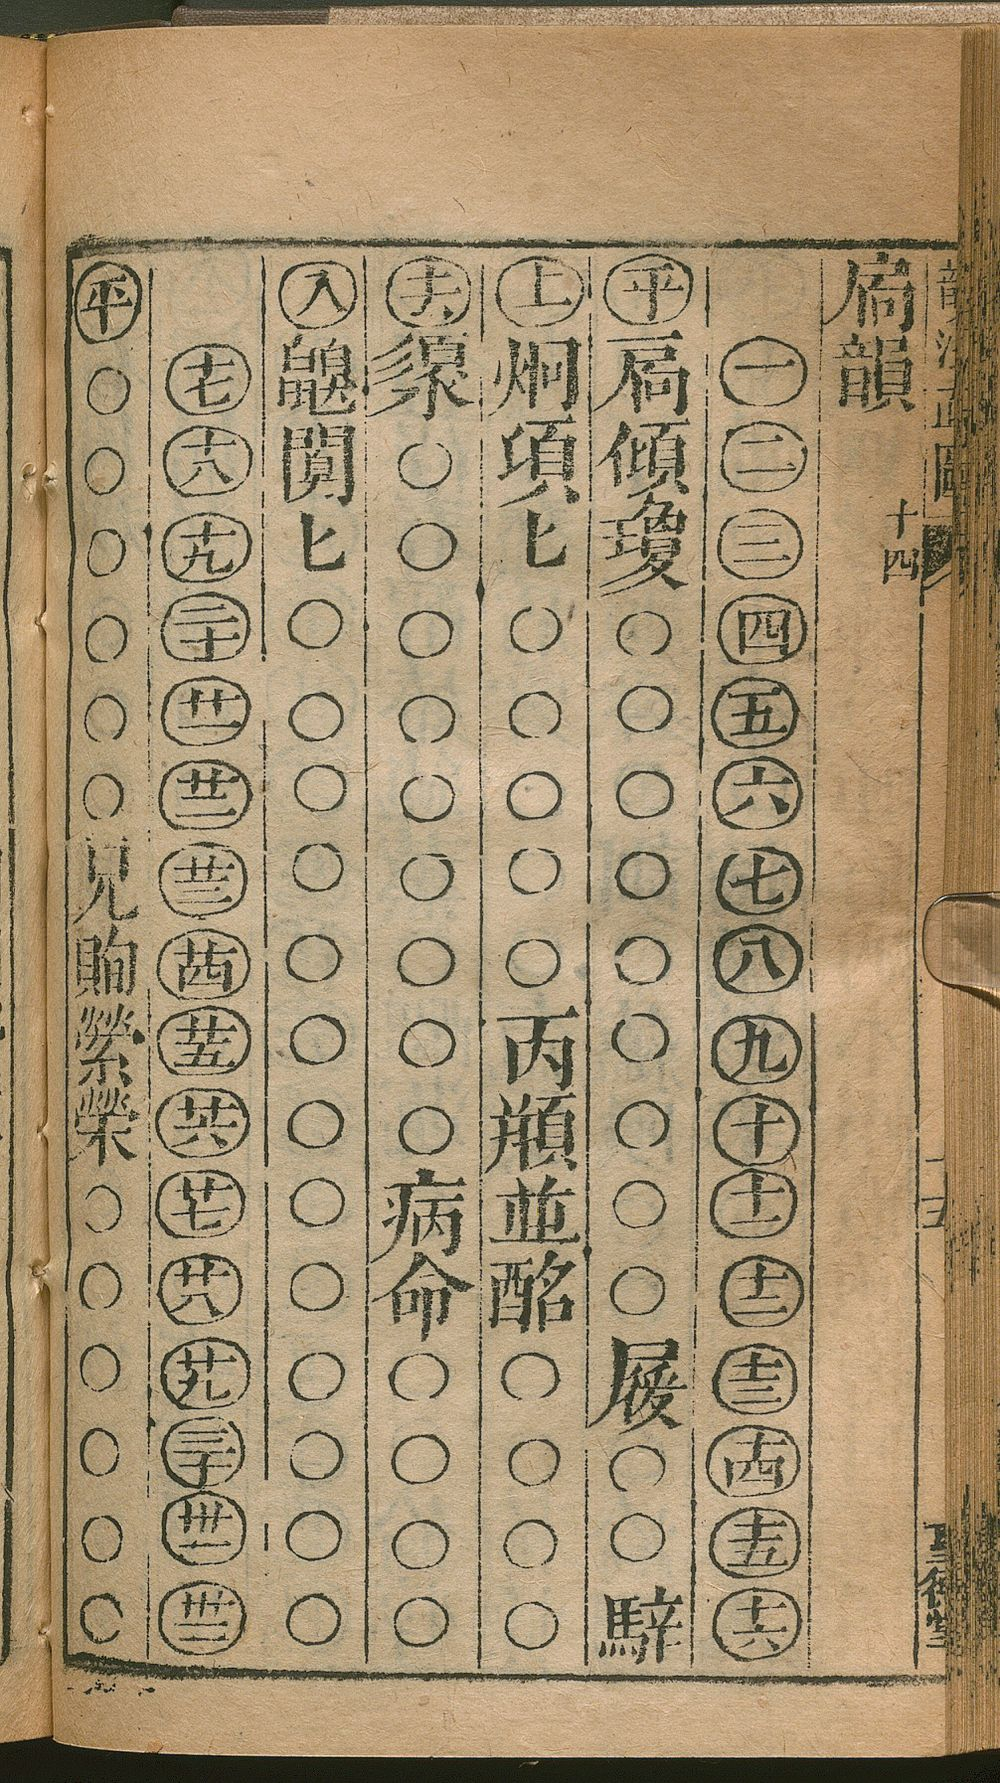 扃韻 十四
㊀㊁㊂㊃㊄㊅㊆㊇㊈㊉⑪⑫⑬⑭⑮⑯
平扃傾瓊○○○○○○○○○屐○○騂
上炯頃𠤎○○○○○丙頩並酩○○○○
去○○○○○○○○○病命○○○○
入闃𠤎○○○○○○○○○○○○○
七十八十九二十廿一廿二廿三廿四廿五廿六廿七廿八廿九三十卅一卅二
平○○○○○○兄眴縈榮○○○○○○